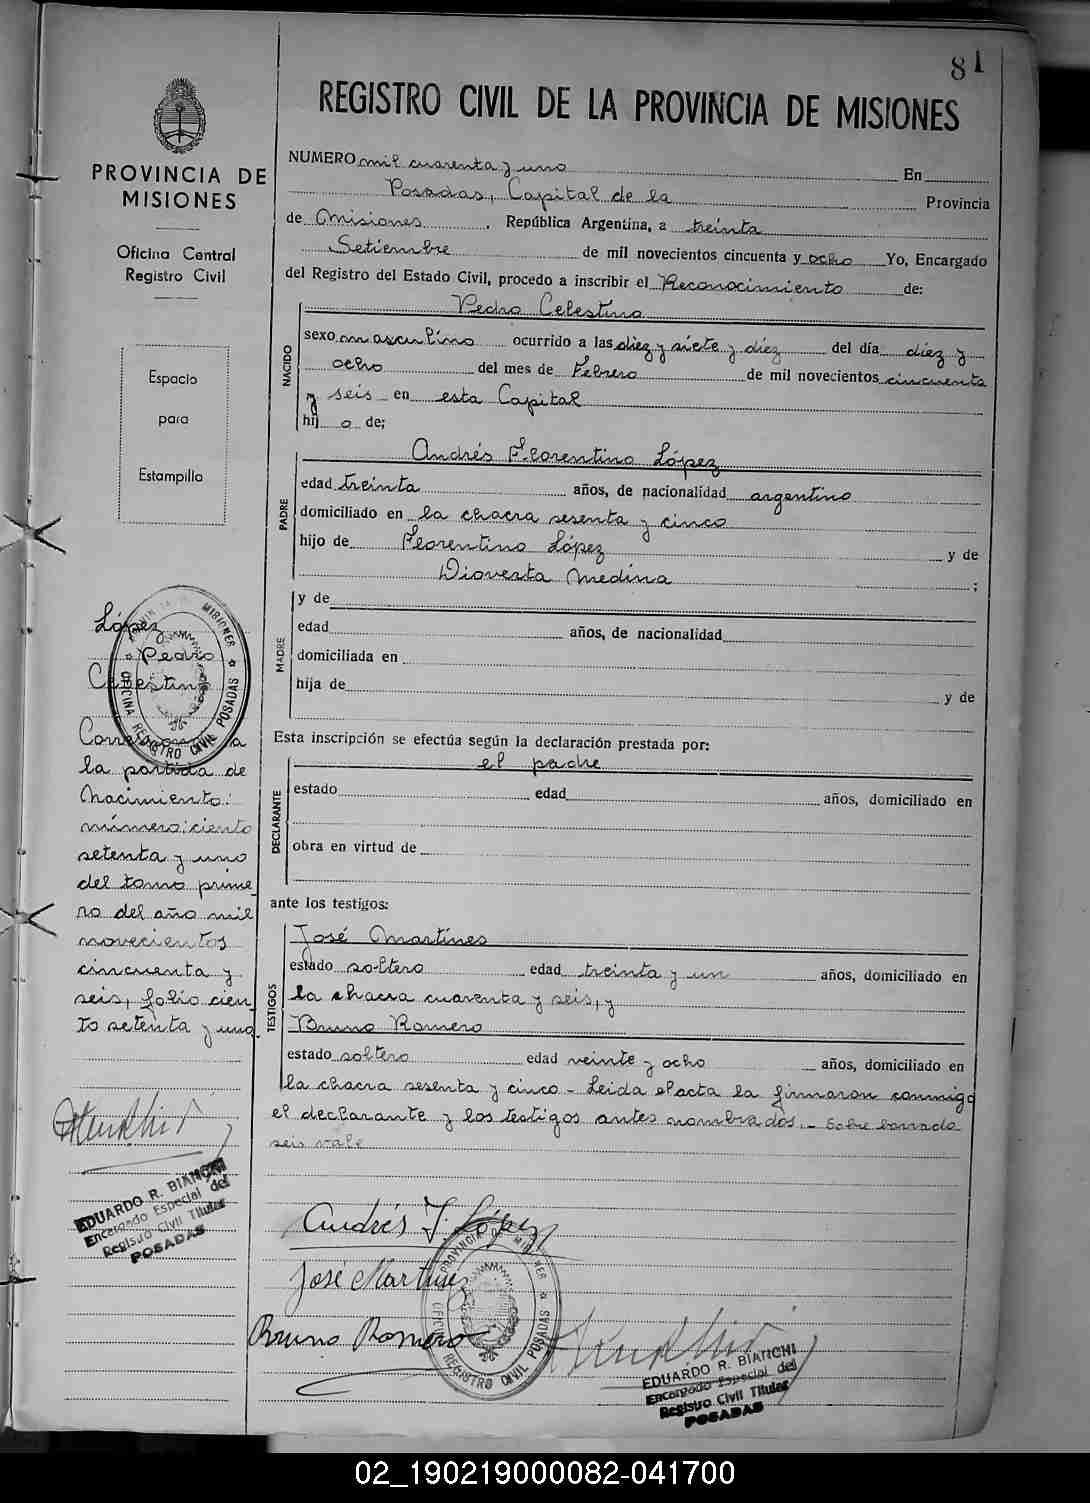 81
REGISTRO CIVIL DE LA PROVINCIA DE MISIONES
PROVINCIA DE
MISIONES
Oficina Central
Registro Civil
Espacio
para
Estampilla
NUMERO mil cuarenta y uno En
Posadas, Capital de la Provincia
de Misiones, República Argentina, a treinta
Setiembre de mil novecientos cincuenta y ocho Yo, Encargado
del Registro del Estado Civil, procedo a inscribir el Reconocimiento de:
Pedro Celestino
NACIDO
sexo masculino ocurrido a las diez y siete y diez del día diez y
ocho del mes de Febrero de mil novecientos cincuenta
y seis en esta Capital
hij o de;
PADRE
Andrés Florentino López
edad treinta años, de nacionalidad argentino
domiciliado en la chacra sesenta y cinco
hijo de Florentino López y de
Medina ;
MADRE
y de
edad años, de nacionalidad
domiciliada en
hija de y de
Esta inscripción se efectúa según la declaración prestada por:
DECLARANTE
el padre
estado edad años, domiciliado en
obra en virtud de
ante los testigos:
TESTIGOS
José Martínes
estado soltero edad treinta y un años, domiciliado en
la chacra cuarenta y seis, y
Bruno Romero
estado soltero edad veinte y ocho años, domiciliado en
la chacra sesenta y cinco - Leida el acta la firmaron conmigo
el declarante y los testigos antes nombrados.- Sobre borrado
seis vale
Andrés F. López
José Martines
Bruno Romero
PROVINCIA DE MISIONES
OFICINA REGISTRO CIVIL POSADAS
EDUARDO R. BIANCHI
Encargado Especial del
Registro Civil Titular
POSADAS
López
Pedro
Celestino
OFICINA REGISTRO CIVIL POSADAS
la partida de
nacimiento:
número: ciento
setenta y uno
del tomo prime-
ro del año mil
novecientos
cincuenta y
seis, folio cien-
to setenta y uno.
EDUARDO R. BIANCHI
Encargado Especial del
Registro Civil Titular
POSADAS
02_190219000082-041700